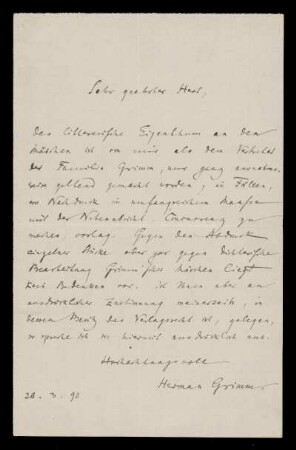 Sehr geehrter Herr,
Das litterarische Eigenthum an den
Märchen ist von mir als dem Vertreter
der Familie Grimm, nur ganz ausnahms-
weise geltend gemacht worden, in Fällen,
wo Nachdruck in umfangreichem Maaße
mit der Nebenabsicht, Concurrenz zu
machen, vorlag. Gegen den Abdruck
einzelner Stücke oder gar gegen dichterische
Bearbeitung Grimm'scher Märchen liegt
kein Bedenken vor. Ist Ihnen aber an
ausdrücklicher Zustimmung meinerseits, in
dessen Besitz das Verlagsrecht ist, gelegen,
so spreche ich sie hiermit ausdrücklich aus.
Hochachtungsvoll
Herman Grimm
28. 3. 90